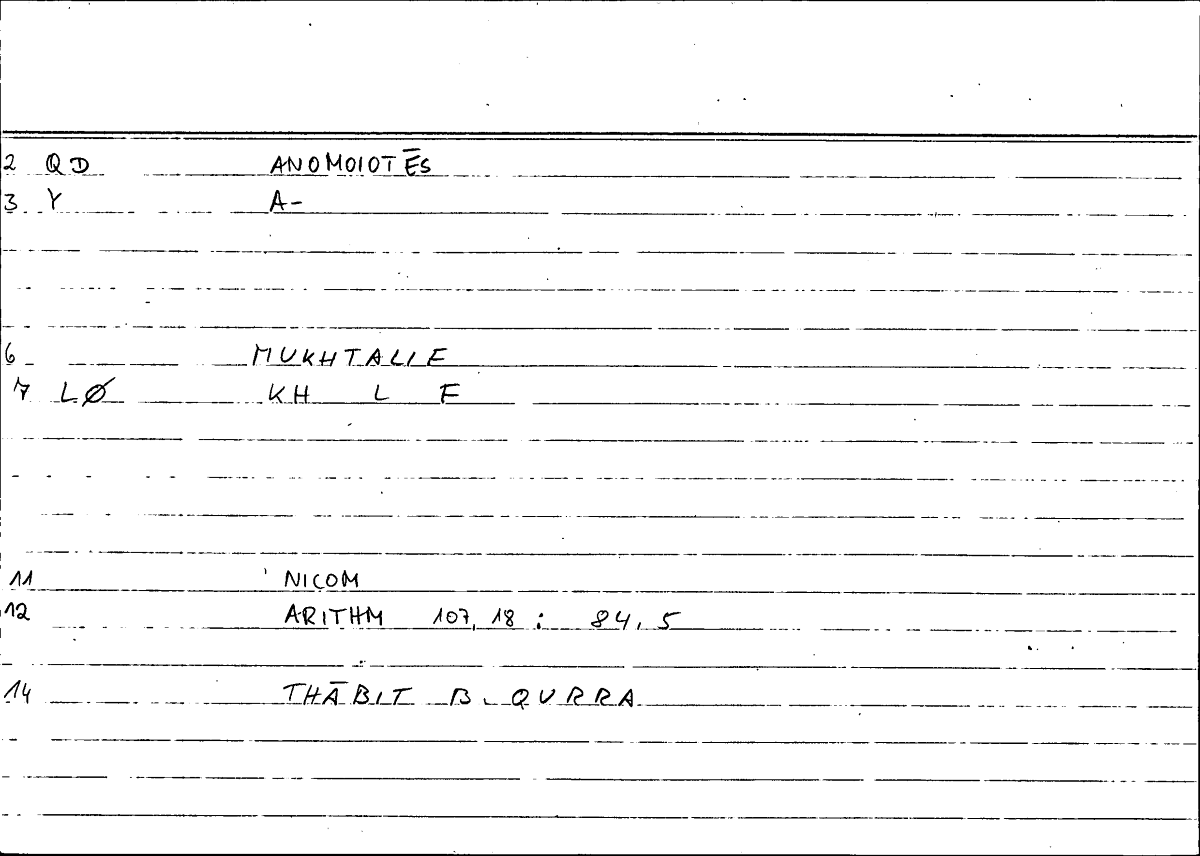 2 QD ANOMOIOTĒS
3 Y A-
6 MUKHTALIF
7 LØ KH L F
11 NICOM
12 ARITHM 107, 18 : 84, 5
14 THĀBIT B. QURRA